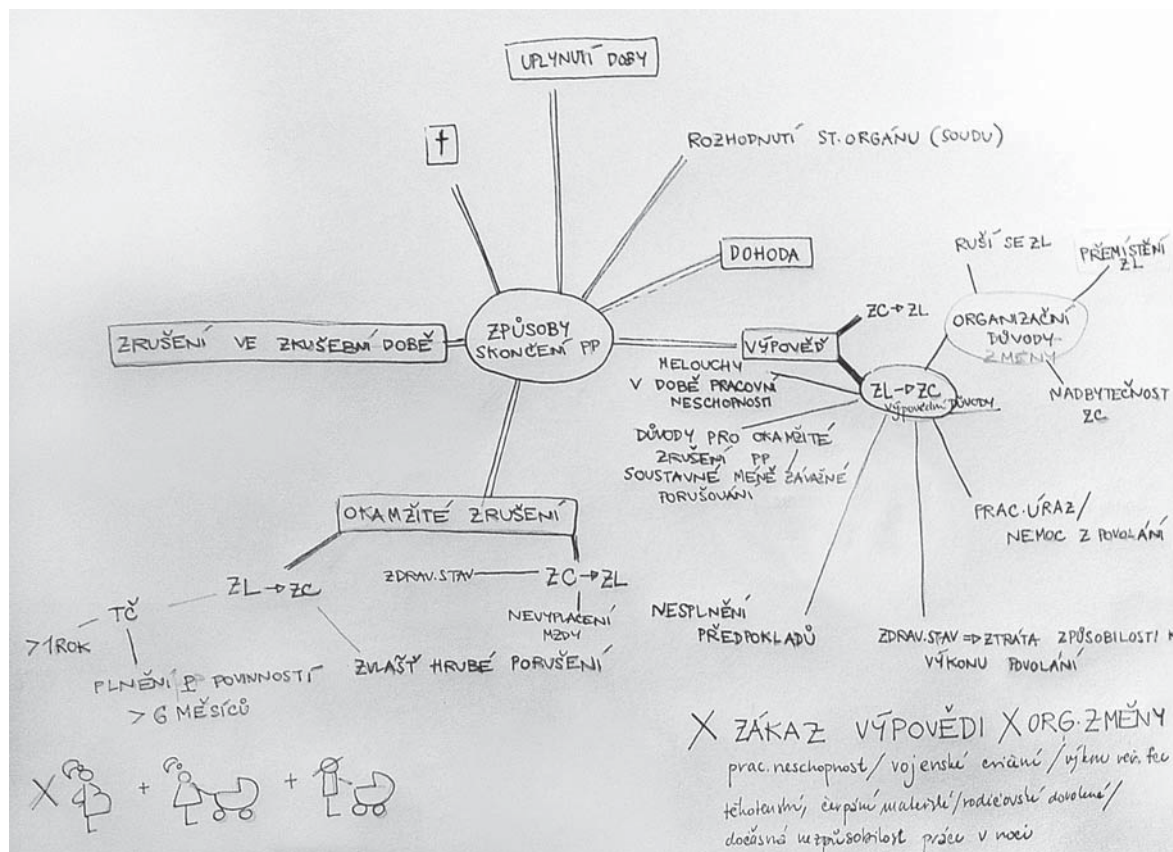 UPLYNUTÍ DOBY
†
ROZHODNUTÍ ST. ORGÁNU (SOUDU)
DOHODA
ZPŮSOBY
SKONČENÍ PP
ZRUŠENÍ VE ZKUŠEBNÍ DOBĚ
VÝPOVĚĎ
ZC→ZL
ZL→ZC
výpovědní DŮVODY
RUŠÍ SE ZL
PŘEMÍSTĚNÍ
ZL
ORGANIZAČNÍ
DŮVODY
ZMĚNY
NADBYTEČNOST
ZC
MELOUCHY
V DOBĚ PRACOVNÍ
NESCHOPNOSTI
DŮVODY PRO OKAMŽITÉ
ZRUŠENÍ PP /
SOUSTAVNÉ MÉNĚ ZÁVAŽNÉ
PORUŠOVÁNÍ
PRAC. ÚRAZ/
NEMOC Z POVOLÁNÍ
NESPLNĚNÍ
PŘEDPOKLADŮ
ZDRAV. STAV ⇒ ZTRÁTA ZPŮSOBILOSTI K
VÝKONU POVOLÁNÍ
OKAMŽITÉ ZRUŠENÍ
ZL→ZC
TČ
>1 ROK
PLNĚNÍ P POVINNOSTÍ
> 6 MĚSÍCŮ
ZVLÁŠŤ HRUBÉ PORUŠENÍ
ZC→ZL
ZDRAV. STAV
NEVYPLACENÍ
MZDY
X + +
X ZÁKAZ VÝPOVĚDI X ORG. ZMĚNY
prac. neschopnost / vojenské cvičení / výkon veř. fce
těhotenství, čerpání mateřské/rodičovské dovolené/
dočasná nezpůsobilost práce v noci